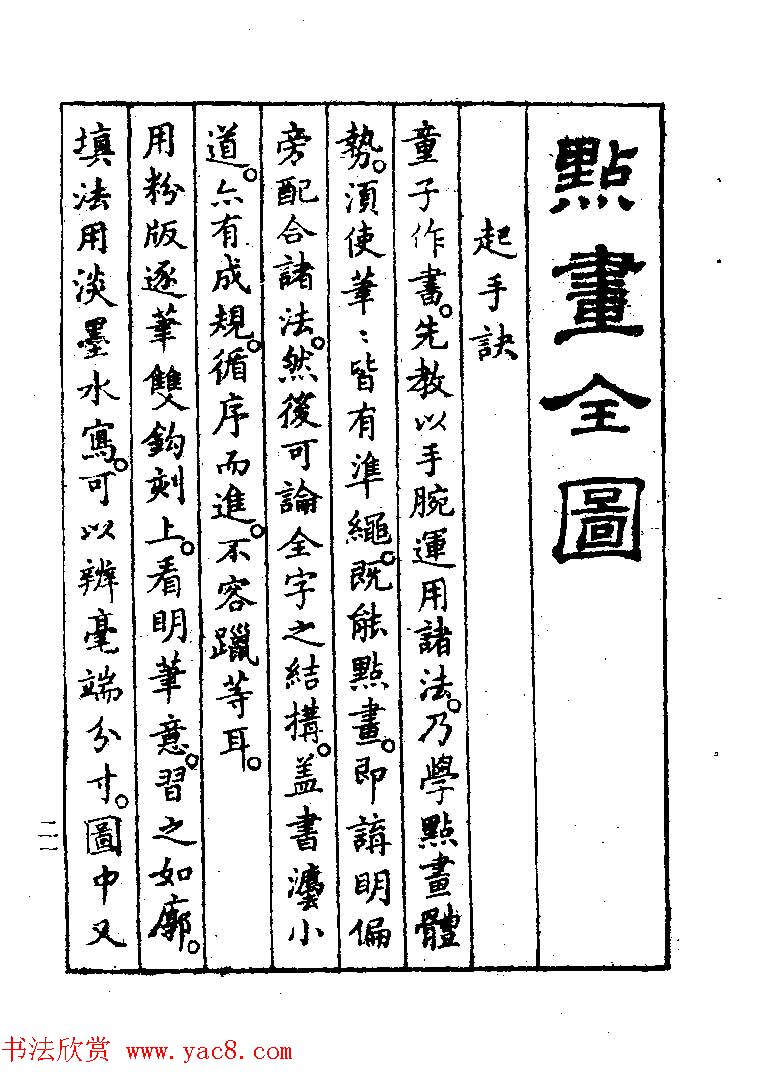 點畫全圖
起手訣
童子作書。先教以手腕運用諸法。乃學點畫體
勢。須使筆〻皆有準繩。既能點畫。即講明偏
旁配合諸法。然後可論全字之結搆。蓋書灋小
道。亦有成規。循序而進。不容躐等耳。
用粉版逐筆雙鈎刻上。看明筆意。習之如廓。
填法用淡墨水寫。可以辨毫端分寸。圖中又
二一
书法欣赏 www.yac8.com